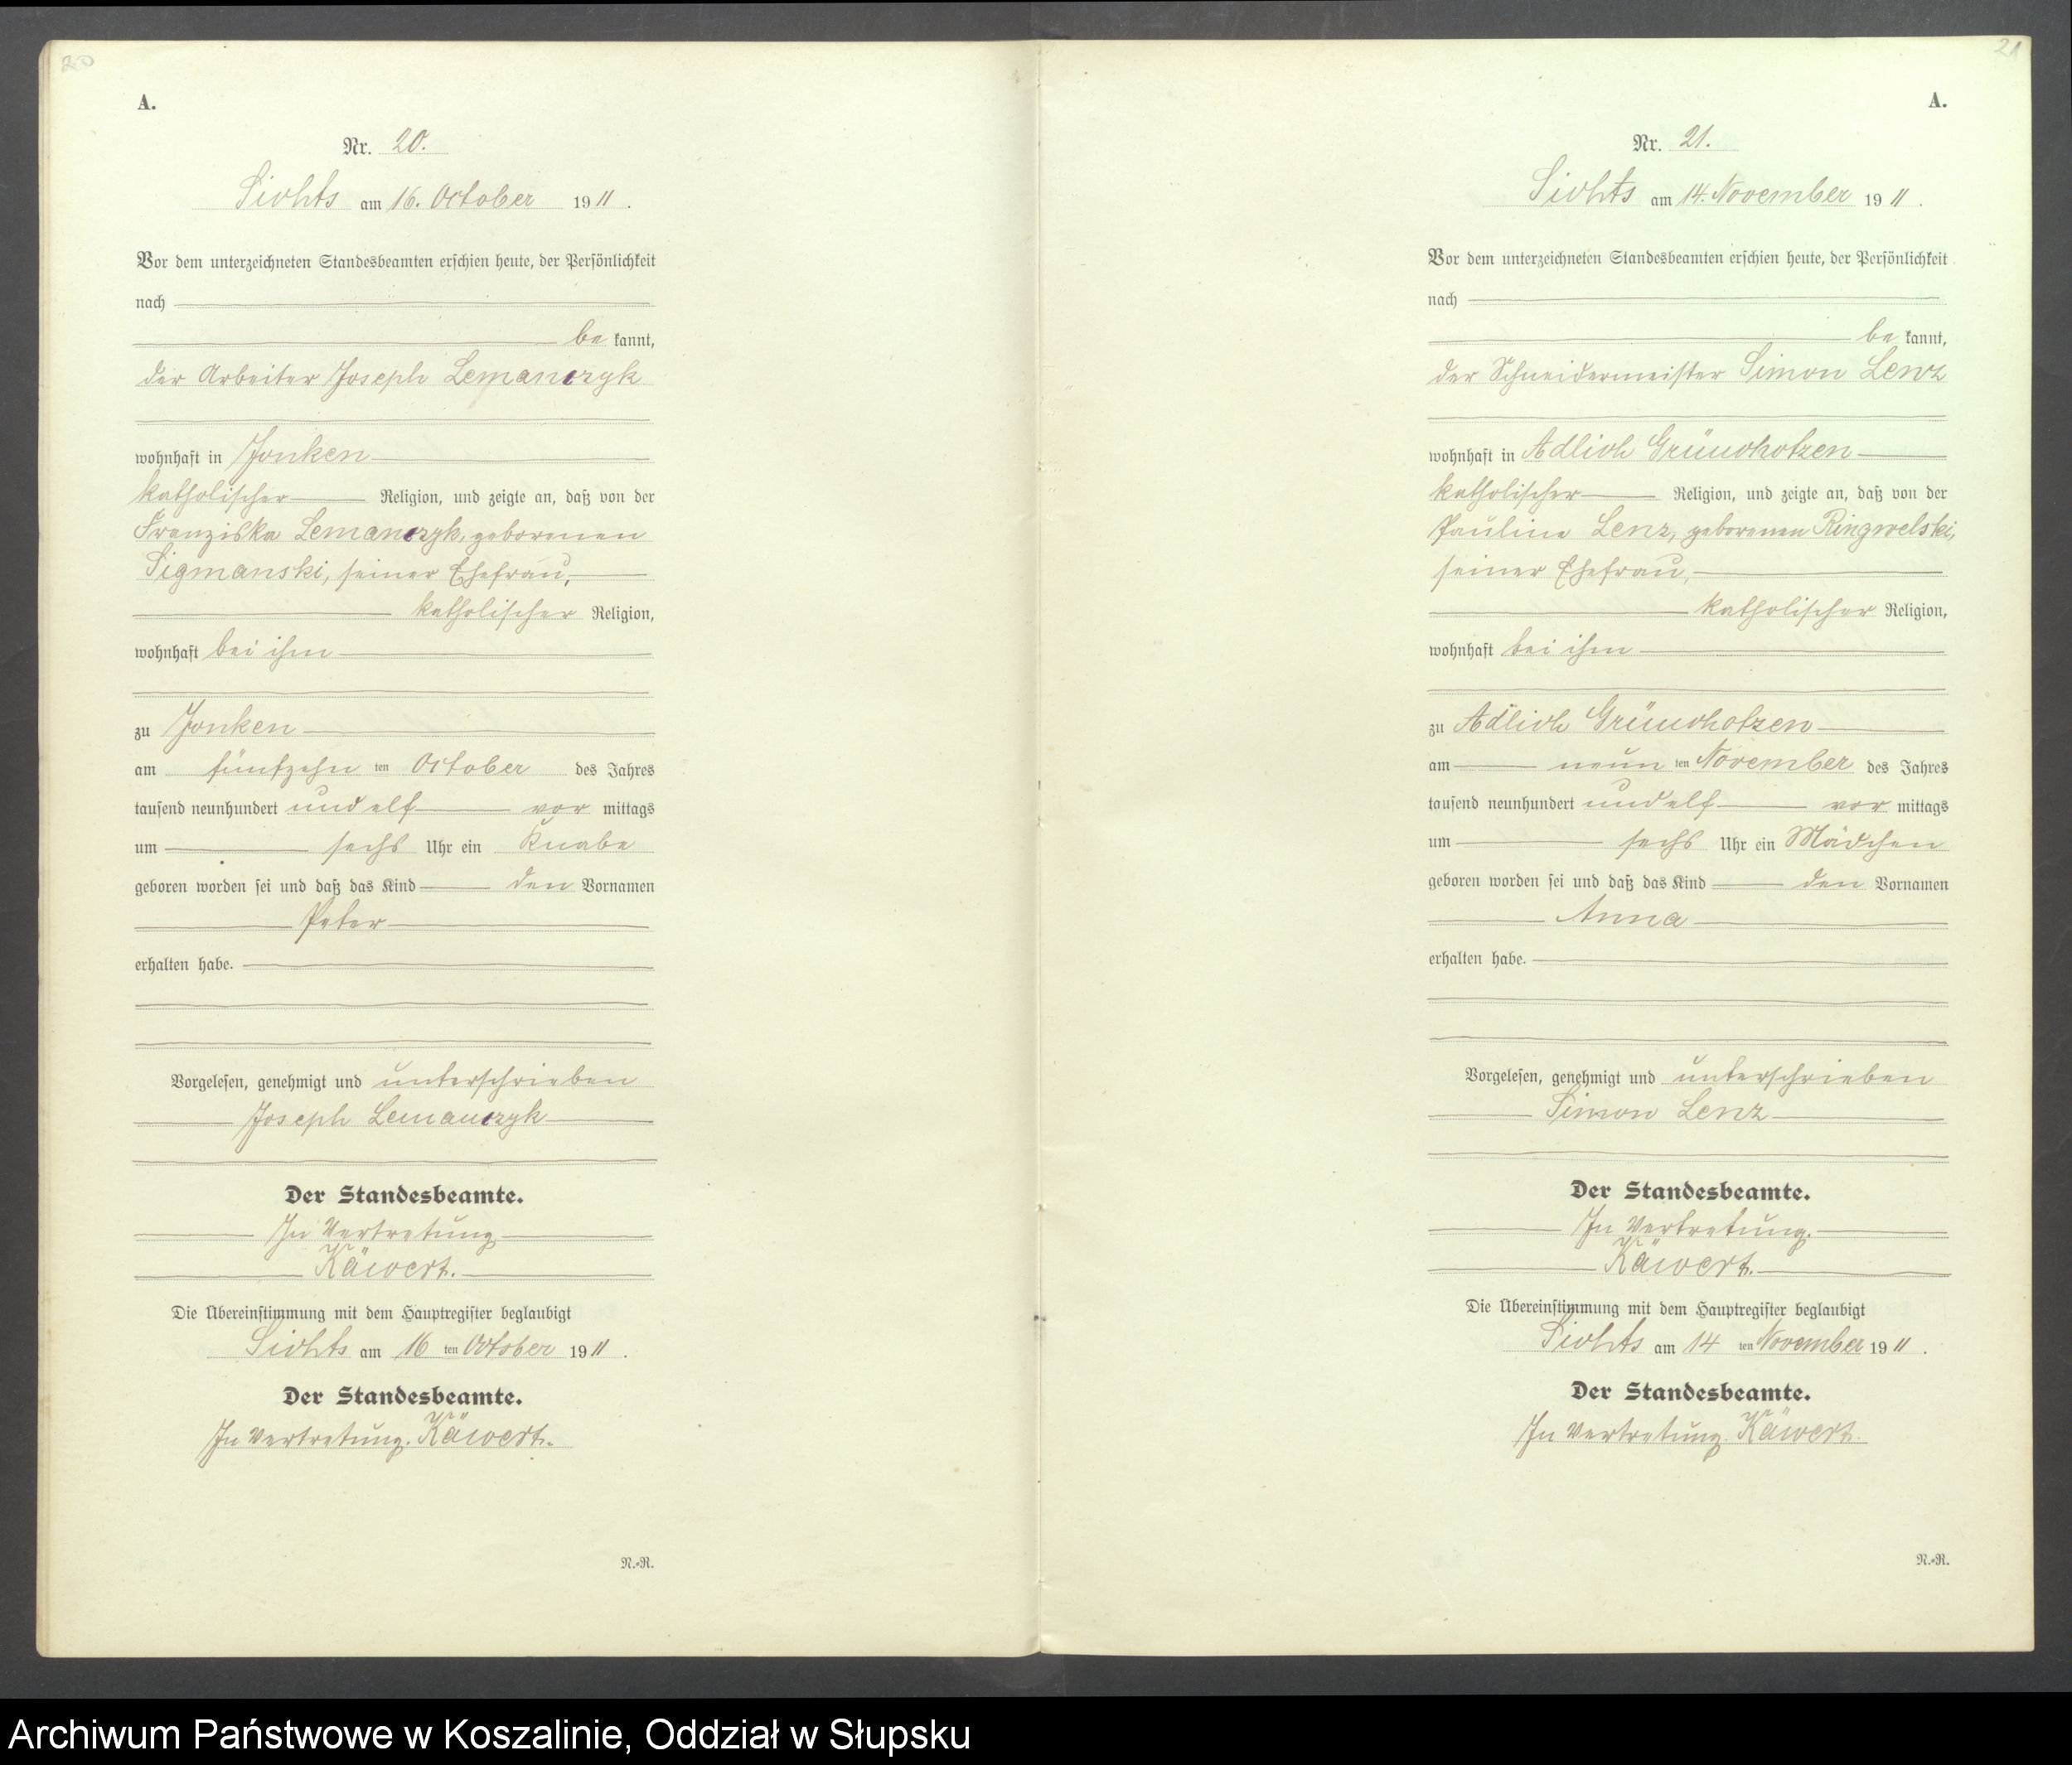 20
A.
Nr. 20.
Sichts am 16. October 1911.
Vor dem unterzeichneten Standesbeamten erschien heute, der Persönlichkeit
nach
be kannt,
der Arbeiter Joseph Lemanczyk
wohnhaft in Jonken
katholischer Religion, und zeigte an, daß von der
Franziska Lemanczyk, geborenen
Sigmanski, seiner Ehefrau,
katholischer Religion,
wohnhaft bei ihm
zu Jonken
am fünfzehn ten October des Jahres
tausend neunhundert und elf vor mittags
um sechs Uhr ein Knabe
geboren worden sei und daß das Kind den Vornamen
Peter
erhalten habe.
Vorgelesen, genehmigt und unterschrieben
Joseph Lemanczyk
Der Standesbeamte.
In Vertretung
Käwert.
Die Übereinstimmung mit dem Hauptregister beglaubigt
Sichts am 16 ten October 1911.
Der Standesbeamte.
In Vertretung. Käwert.
N.-R.
21
A.
Nr. 21.
Sichts am 14. November 1911.
Vor dem unterzeichneten Standesbeamten erschien heute, der Persönlichkeit
nach
be kannt,
der Schneidermeister Simon Lenz
wohnhaft in Adlich Gründhotzen
katholischer Religion, und zeigte an, daß von der
Pauline Lenz, geborenen Ringwelski,
seiner Ehefrau,
katholischer Religion,
wohnhaft bei ihm
zu Adlich Gründhotzen
am neun ten November des Jahres
tausend neunhundert und elf vor mittags
um sechs Uhr ein Mädchen
geboren worden sei und daß das Kind den Vornamen
Anna
erhalten habe.
Vorgelesen, genehmigt und unterschrieben
Simon Lenz
Der Standesbeamte.
In Vertretung.
Käwert.
Die Übereinstimmung mit dem Hauptregister beglaubigt
Sichts am 14 ten November 1911.
Der Standesbeamte.
In Vertretung. Käwert.
N.-R.
Archiwum Państwowe w Koszalinie, Oddział w Słupsku